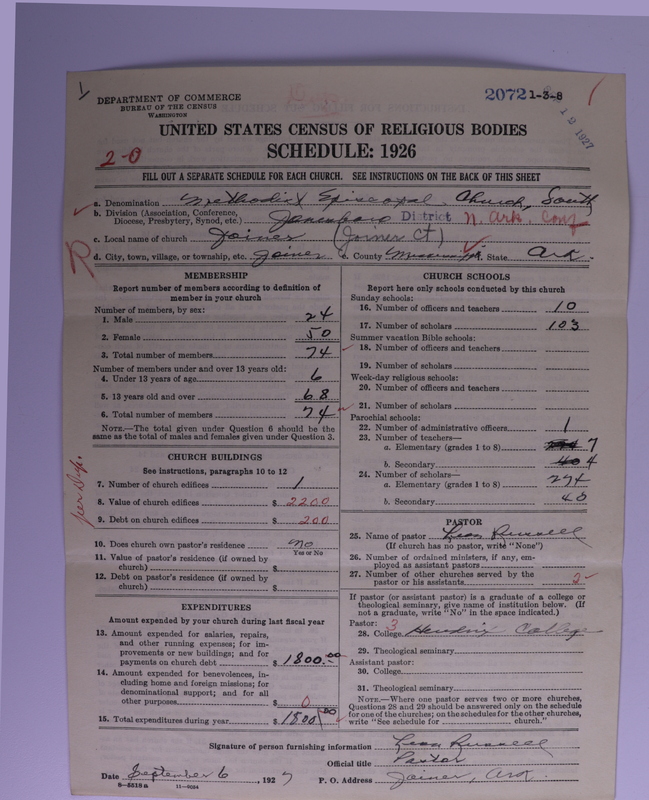 DEPARTMENT OF COMMERCE
BUREAU OF THE CENSUS
WASHINGTON
2072 1-3-8
12 1927
UNITED STATES CENSUS OF RELIGIOUS BODIES
2-0
SCHEDULE: 1926
FILL OUT A SEPARATE SCHEDULE FOR EACH CHURCH. SEE INSTRUCTIONS ON THE BACK OF THIS SHEET
a. Denomination Methodist Episcopal Church, South
b. Division (Association, Conference, Diocese, Presbytery, Synod, etc.) Jonesboro District N. Ark. Conf
c. Local name of church Joiner (Joiner Ct)
d. City, town, village, or township, etc. Joiner e. County Mississippi State Ark.
R
MEMBERSHIP
Report number of members according to definition of
member in your church
Number of members, by sex:
1. Male 24
2. Female 50
3. Total number of members 74
Number of members under and over 13 years old:
4. Under 13 years of age 6
5. 13 years old and over 68
6. Total number of members 74
NOTE.—The total given under Question 6 should be the
same as the total of males and females given under Question 3.
CHURCH BUILDINGS
See instructions, paragraphs 10 to 12
7. Number of church edifices 1
8. Value of church edifices $ 2200
9. Debt on church edifices $ 200
10. Does church own pastor's residence No
Yes or No
11. Value of pastor's residence (if owned by
church) $
12. Debt on pastor's residence (if owned by
church) $
EXPENDITURES
Amount expended by your church during last fiscal year
13. Amount expended for salaries, repairs,
and other running expenses; for im-
provements or new buildings; and for
payments on church debt $ 1800.00
14. Amount expended for benevolences, in-
cluding home and foreign missions; for
denominational support; and for all
other purposes $ 0
15. Total expenditures during year $ 1800.00
CHURCH SCHOOLS
Report here only schools conducted by this church
Sunday schools:
16. Number of officers and teachers 10
17. Number of scholars 103
Summer vacation Bible schools:
18. Number of officers and teachers
19. Number of scholars
Week-day religious schools:
20. Number of officers and teachers
21. Number of scholars
Parochial schools:
22. Number of administrative officers 1
23. Number of teachers—
a. Elementary (grades 1 to 8) 7
b. Secondary 40 4
24. Number of scholars—
a. Elementary (grades 1 to 8) 274
b. Secondary 40
PASTOR
25. Name of pastor Leon Russell
(If church has no pastor, write "None")
26. Number of ordained ministers, if any, em-
ployed as assistant pastors
27. Number of other churches served by the
pastor or his assistants 2
If pastor (or assistant pastor) is a graduate of a college or
theological seminary, give name of institution below. (If
not a graduate, write "No" in the space indicated.)
Pastor: 3
28. College Hendrix College
29. Theological seminary
Assistant pastor:
30. College
31. Theological seminary
NOTE.—Where one pastor serves two or more churches,
Questions 28 and 29 should be answered only on the schedule
for one of the churches; on the schedules for the other churches,
write "See schedule for church."
Signature of person furnishing information Leon Russell
Official title Pastor
Date September 6, 1927 P. O. Address Joiner, Ark.
8-5518a 11-9034